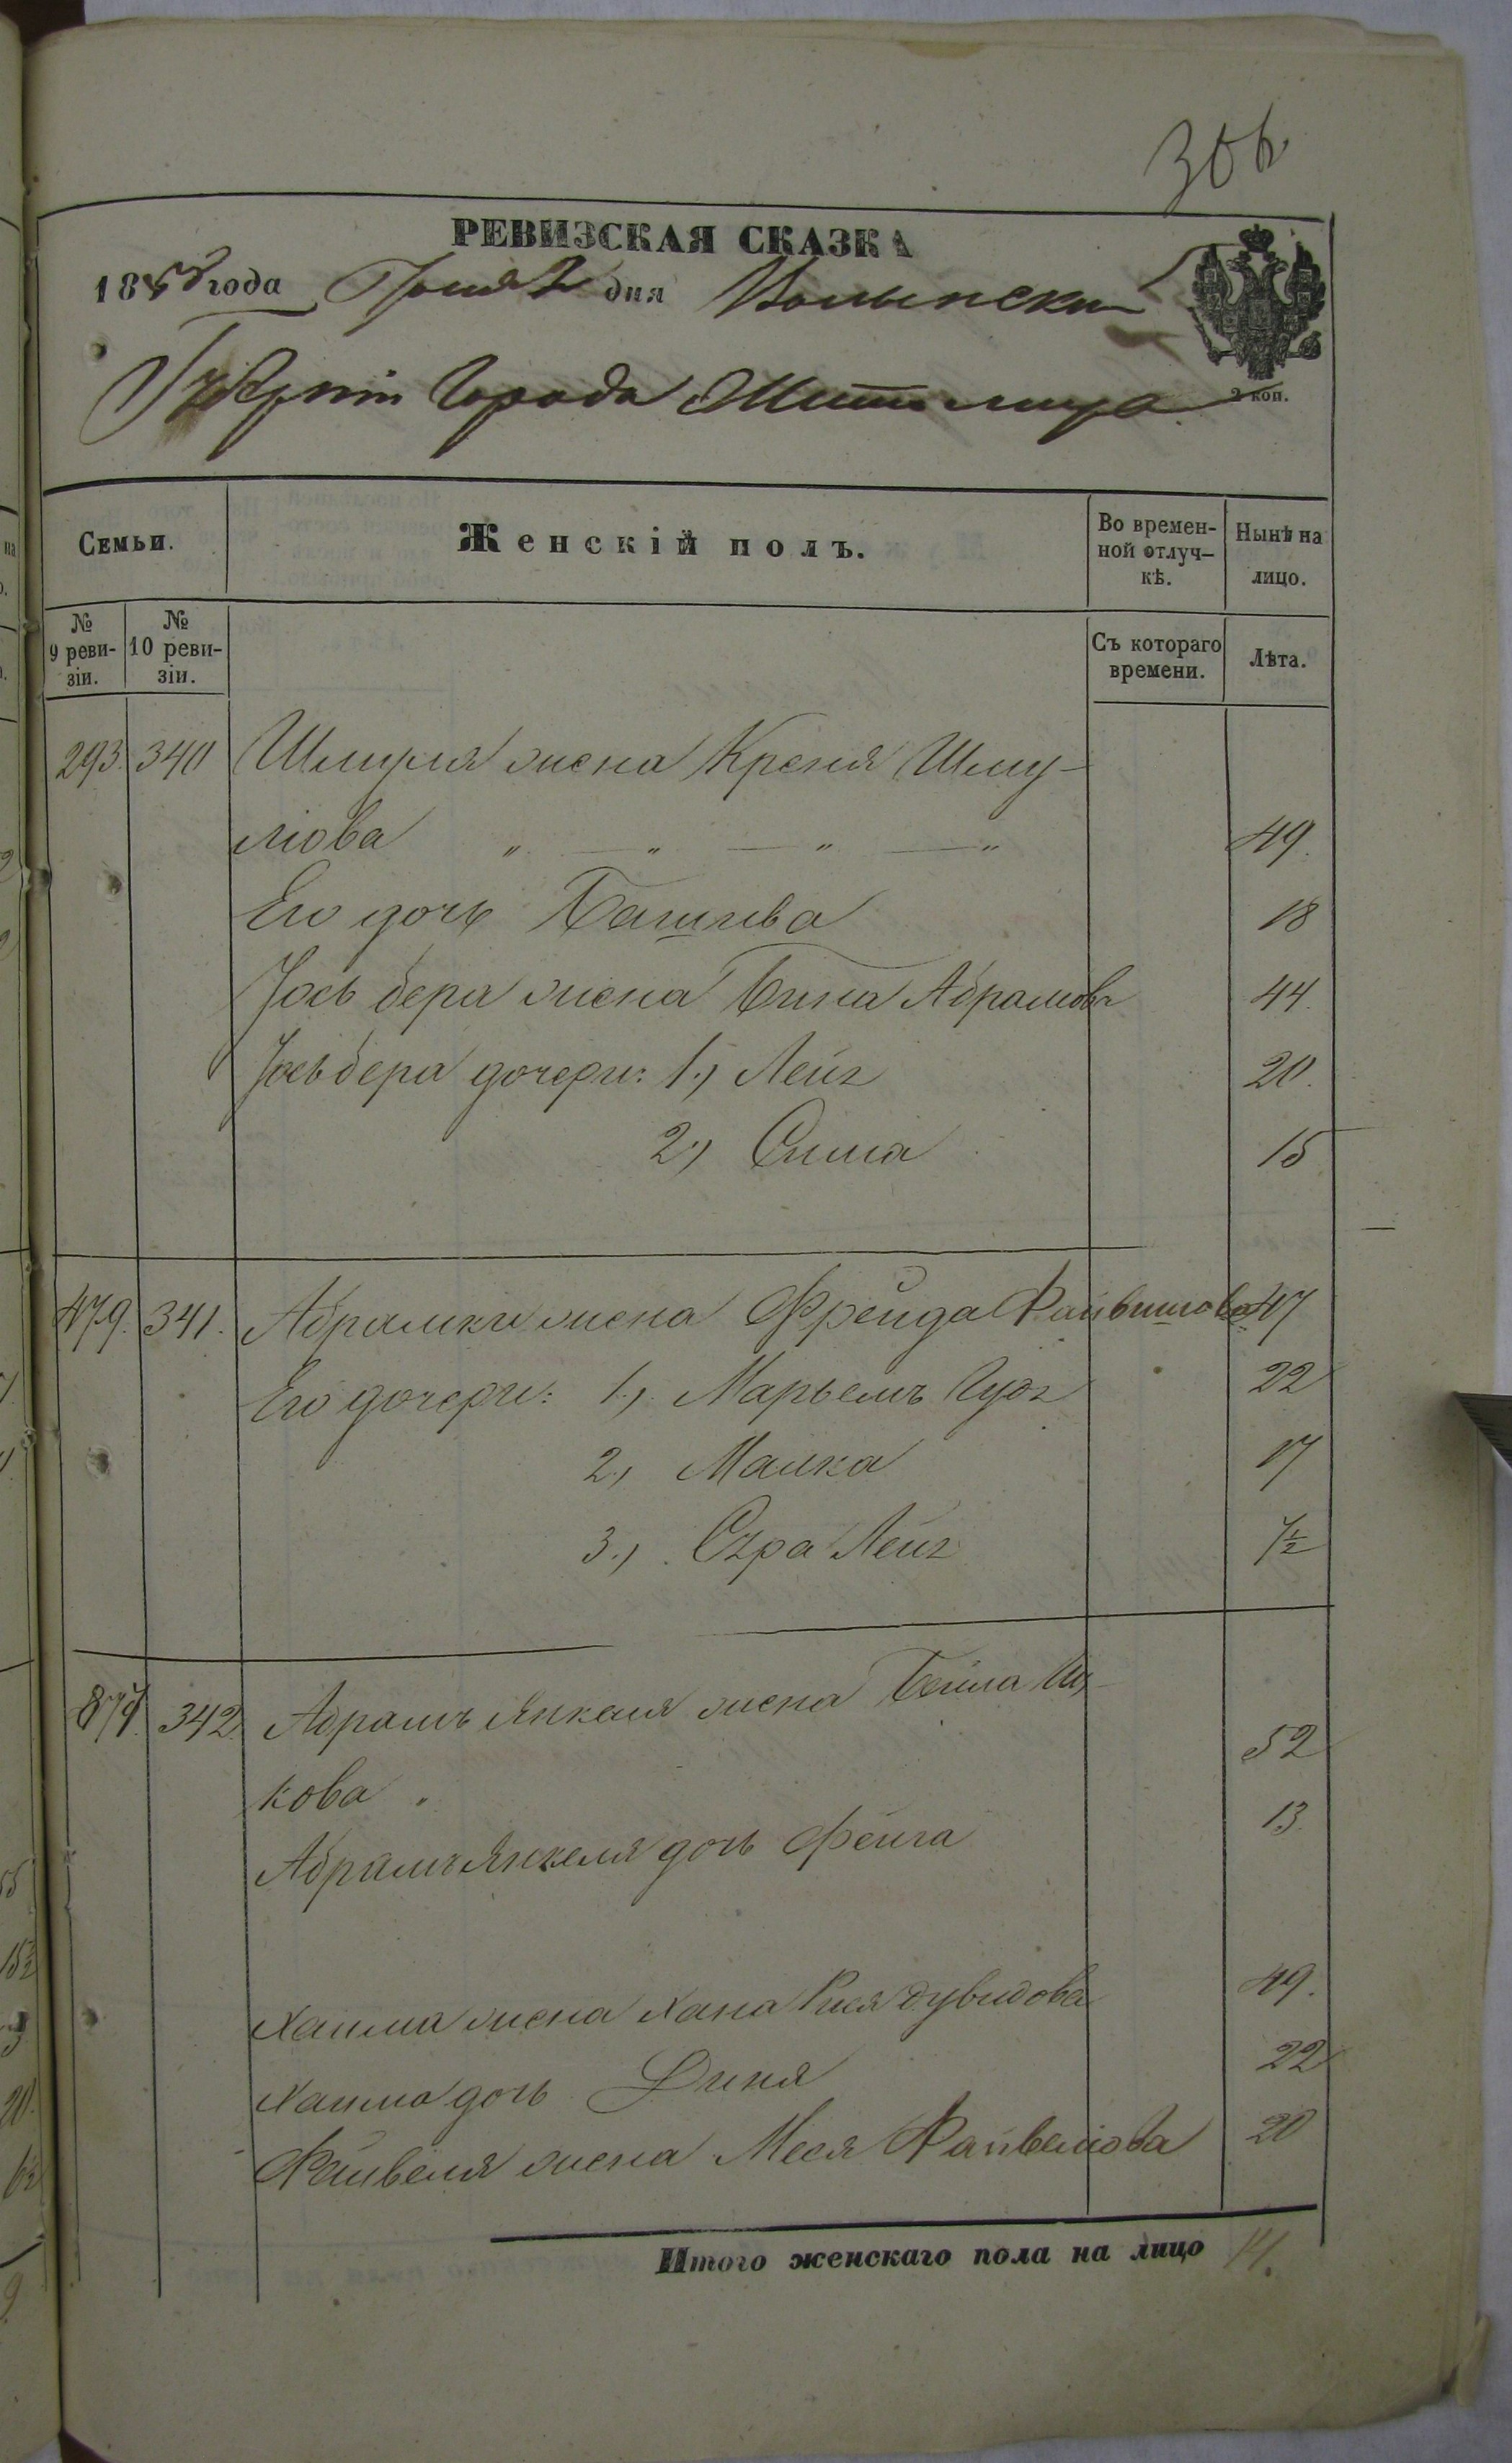 306.
РЕВИЗСКАЯ СКАЗКА
1858 года Іюня 2 дня Волынской
Губерніи Города Житомира
2 коп.
Семьи. Женскій полъ. Во времен-ной отлуч-кѣ. Нынѣ на лицо.
№ 9 реви-зіи. № 10 реви-зіи. Съ котораго времени. Лѣта.
293. 340 Шмуля жена Креня Шму-
люва " — " — " — " 49.
Его дочь Башива 18
Іось бера жена Бина Абрамова 44.
Іось бера дочери: 1.) Лея 20.
2.) Сима 15
479. 341. Абрамки жена Фрейда Файвишова 47
Его дочери: 1.) Марьемъ 22
2.) Малка 17
3.) Сура Лея 7½
877. 342. Абрамъ Янкеля жена Бейла Иц-
кова " 52
Абрамъ Янкеля дочь Фейга 13.
Хаима жена Хана Рися Дувидова 49.
Хаима дочь Диня 22
Файвеля жена Меся Файвелюва 20
Итого женскаго пола на лицо 14.